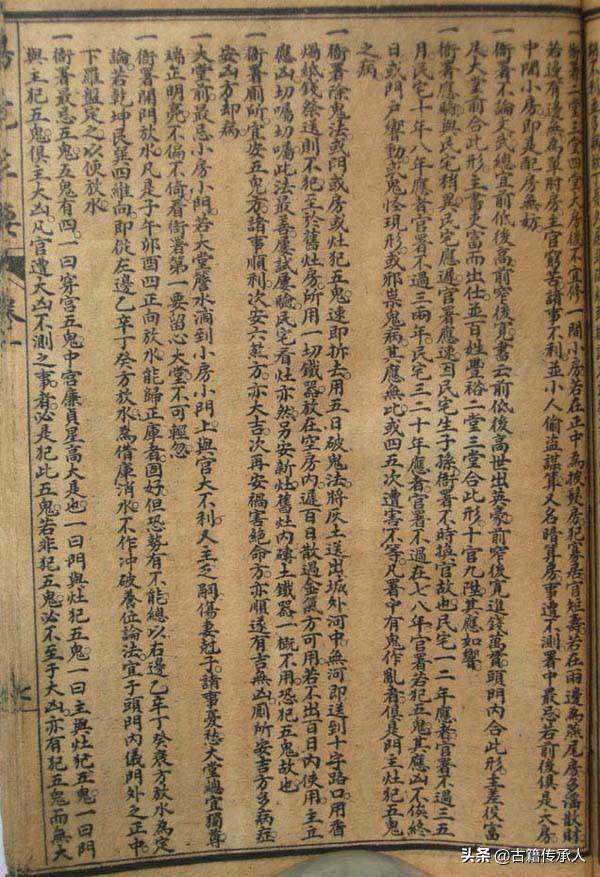 一衙署二堂三堂四堂大房後不宜修一間小房若在正中為披髮房犯寡居官短壽若在兩邊為燕尾房多淫散財
若邊有邊無為單肘房主官窮苦諸事不利並小人偷盜謀算又名暗算房事遭不測署中最忌若前後俱是大房
中間小房即是配房無妨
一衙署不論文武總宜前低後高前窄後寬書云前低後高世出英豪前窄後寬進錢萬貫頭門內合此形主差役富
足大堂前合此形主書吏富而出仕並百姓豐裕二堂三堂合此形十官九陞其應如響
一衙署應驗與民宅稍異民宅應遲官署應速因民宅生子孫衙署不時換官故也民宅一二年應者官署不過三五
月民宅十年八年應者官署不過三兩年民宅三二十年應者官署不過在七八年官署若犯五鬼其應凶不俟終
日或門戶響動或鬼怪現形或邪祟鬼病其應無比或四五次遭害不等凡署中有鬼作亂者俱是門主灶犯五鬼
之病
一衙署除鬼法或門或房或灶犯五鬼速即拆去用五日破鬼法將灰土送出城外河中無河即送到十字路口用香
燭紙錢祭送則不犯至於舊灶房所用一切鐵器放在空房內遲百日散過金氣方可用若不出百日內使用主立
應凶切囑切囑此法最善屢試屢驗民宅看灶亦然另安新灶舊灶內磚土鐵器一概不用恐犯五鬼故也
一衙署廁所宜安五鬼方諸事順利次安六煞方亦大吉次再安禍害絕命方亦順遂有吉無凶廁所安吉方多病症
安凶方却病
一大堂前最忌小房小門若大堂簷水滴到小房小門上與官大不利又主乏嗣傷妻尅子諸事憂愁大堂總宜獨尊
端正明亮不偏不倚看衙署第一要留心大堂不可輕忽
一衙署開門放水凡是子午卯酉四正向放水能歸正庫者固好但恐勢有不能總以右邊乙辛丁癸衰方放水為定
論若乾坤艮巽四維向即從左邊乙辛丁癸方放水為借庫消水不作冲破養位論法宜于頭門內儀門外之正中
下羅盤定之以便放水
一衙署最忌五鬼五鬼有四一曰穿宮五鬼中宮廉貞星高大是也一曰門與灶犯五鬼一曰主與灶犯五鬼一曰門
與主犯五鬼俱主大凶凡官遭大凶不測之事者必是犯此五鬼若非犯五鬼必不至于大凶亦有犯五鬼而無大
頭条 @古籍传承人